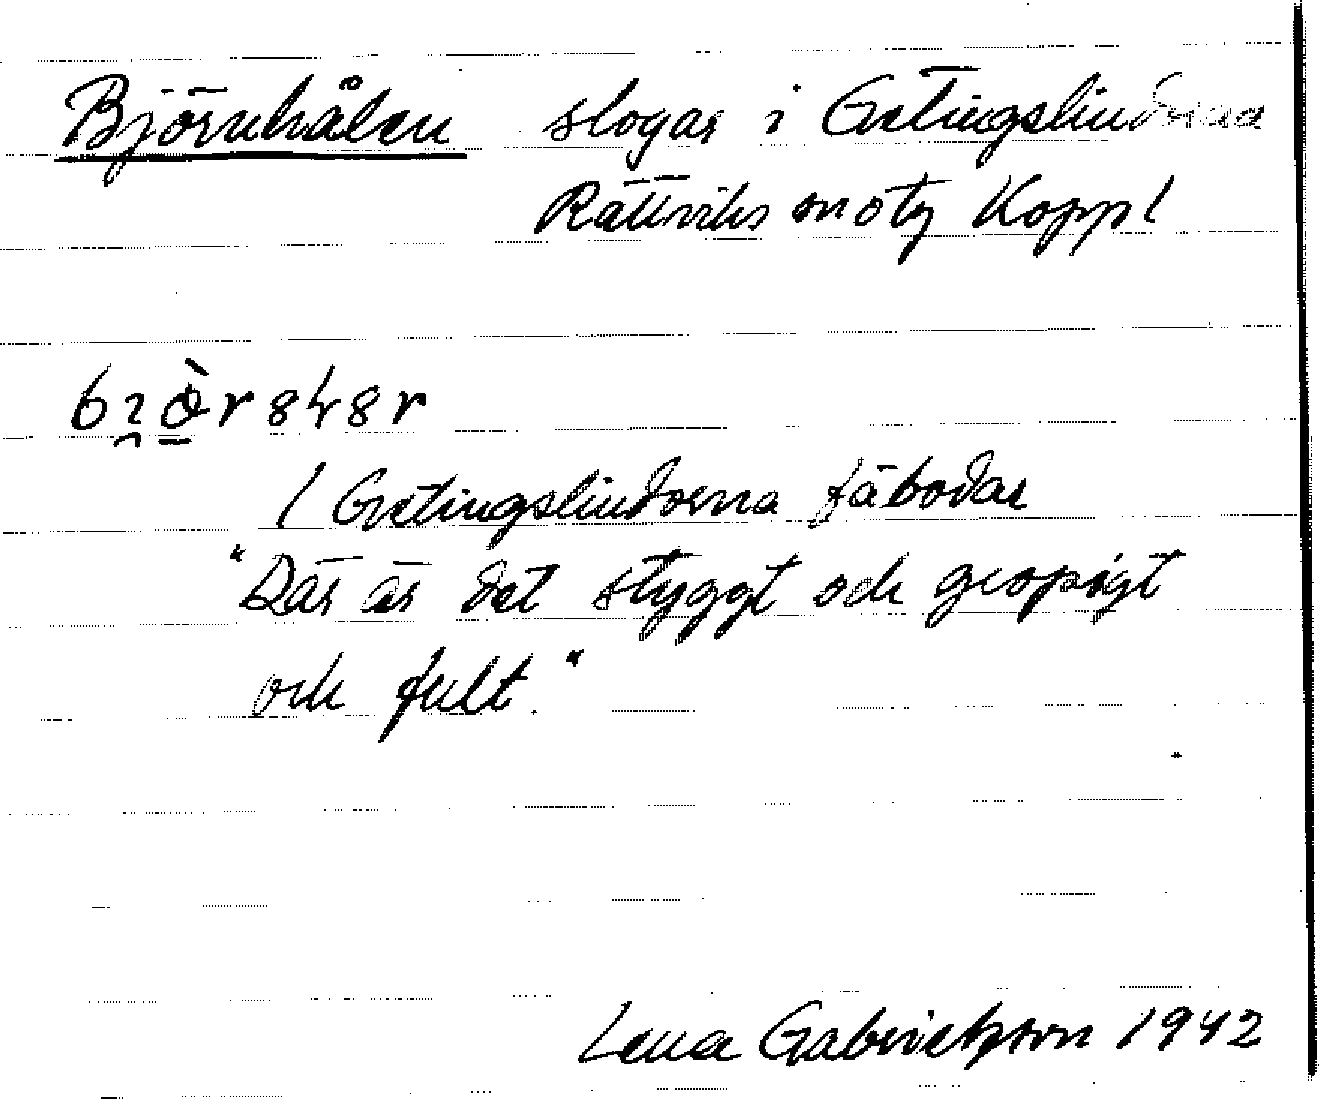 Björnhålen slogar i Getingslindorna
Rättviks snotg Koppl
I Getingslindorna fäbodar
"Där är det styggt och gropigt
och fult."
Lena Gabrielsson 1942